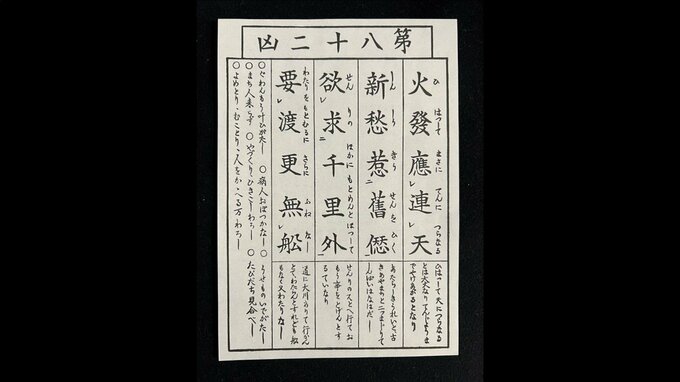 第八十二凶
火發應連天
ひ はつして まさに てんに つらなる
ひはつして天につらなる
とは大火なりてんじようま
でやけあがるとなり
新愁惹舊愆
しん しう きう せんを ひく
あたらしきうれいと古
きあやまちと二つまじりて
しんぱいはなはだし
欲求千里外
せん りの ほかに もとめんと ほつして
せんりの外へ行てお
もふ事をとげんとす
るていなり
要渡更無舩
わたりを もとむるに さらに ふね なし
道に大川ありて行かん
とてわたらんとすれども船
もなく又わたりなし
○ぐわんもう叶ひがたし ○病人おぼつかなし ○うせものいでがたし
○まち人来らず ○やづくりひきこしわろし ○たびだち見合べし
○よめとり、むことり、人をかゝへる万わろし